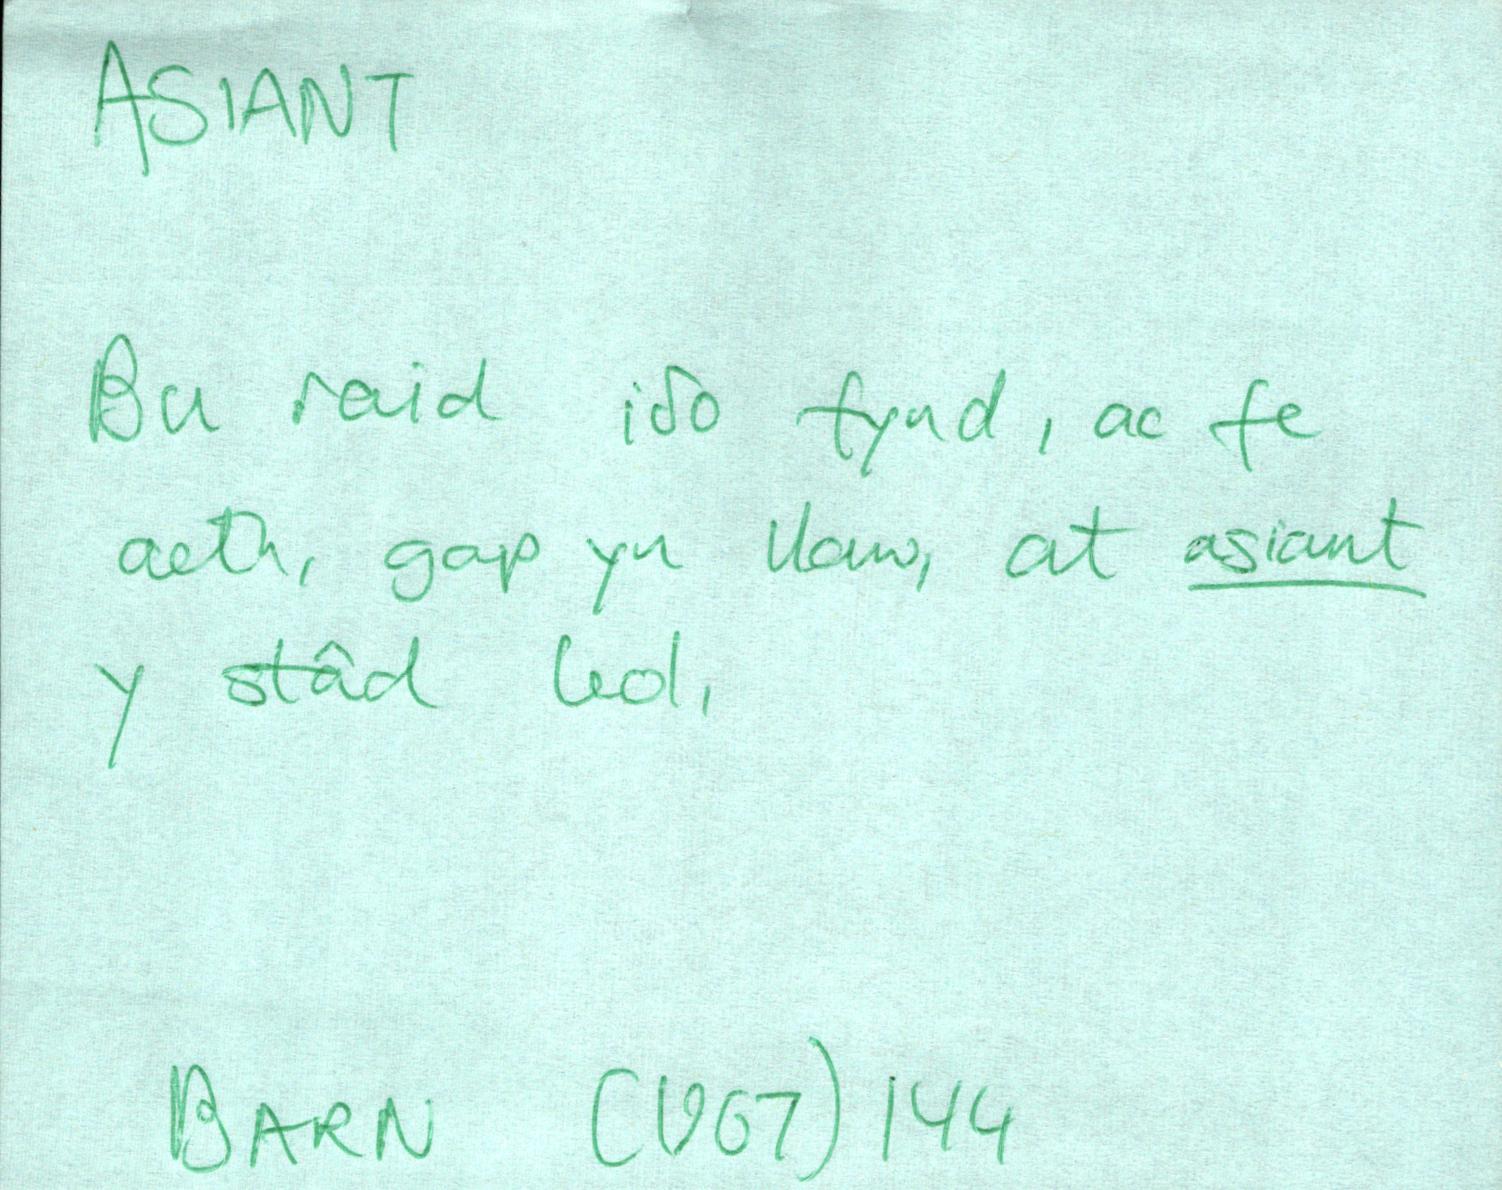 ASIANT
Bu raid iδo fynd, ac fe
aeth, gap yn llaw, at asiant
y stâd leol,
BARN (1967) 144